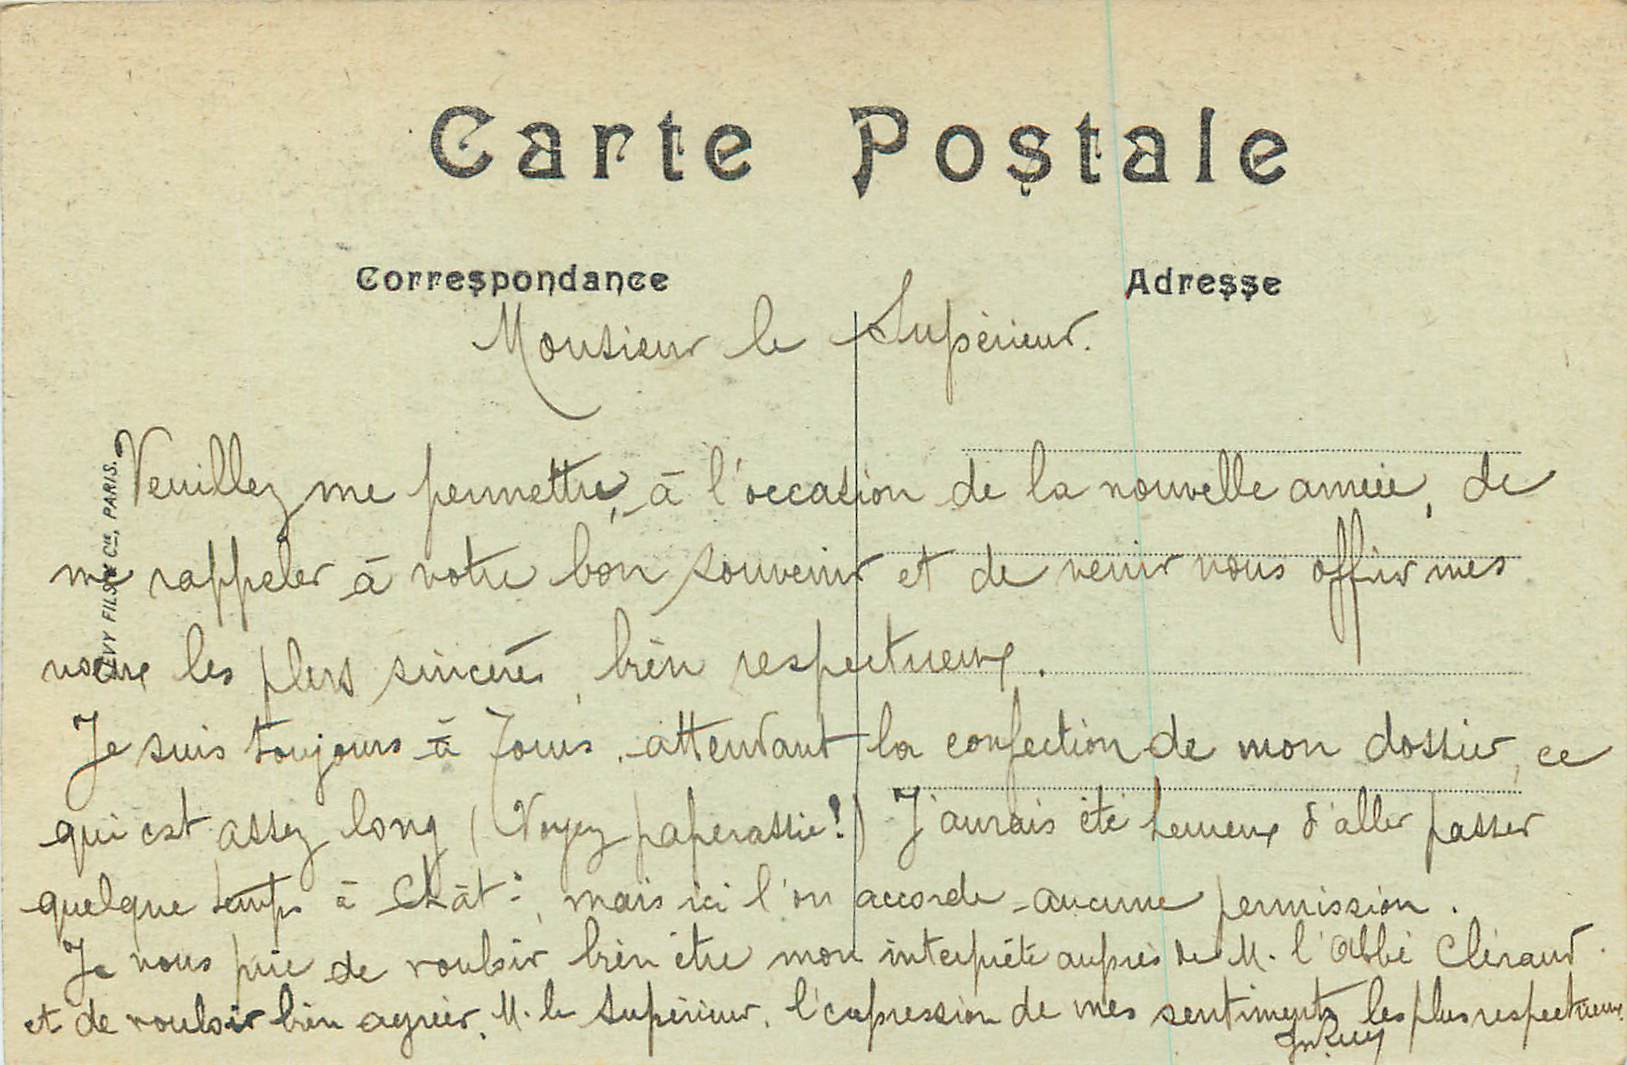 Carte Postale
Correspondance
Adresse
LEVY FILS & Cie, PARIS.
Monsieur le Supérieur.
Veuillez me permettre, à l'occasion de la nouvelle année, de
me rappeler à votre bon souvenir et de venir vous offrir mes
voeux les plus sincères, bien respectueux.
Je suis toujours à Tours, attendant la confection de mon dossier, ce
qui est assez long (Voyez paperassie!) J'aurais été heureux d'aller passer
quelque temps à Chât:, mais ici l'on accorde aucune permission.
Je vous prie de vouloir bien être mon interprète auprès de M. l'Abbé Cléraud.
et de vouloir bien agréer, M. le Supérieur, l'expression de mes sentiments les plus respectueux.